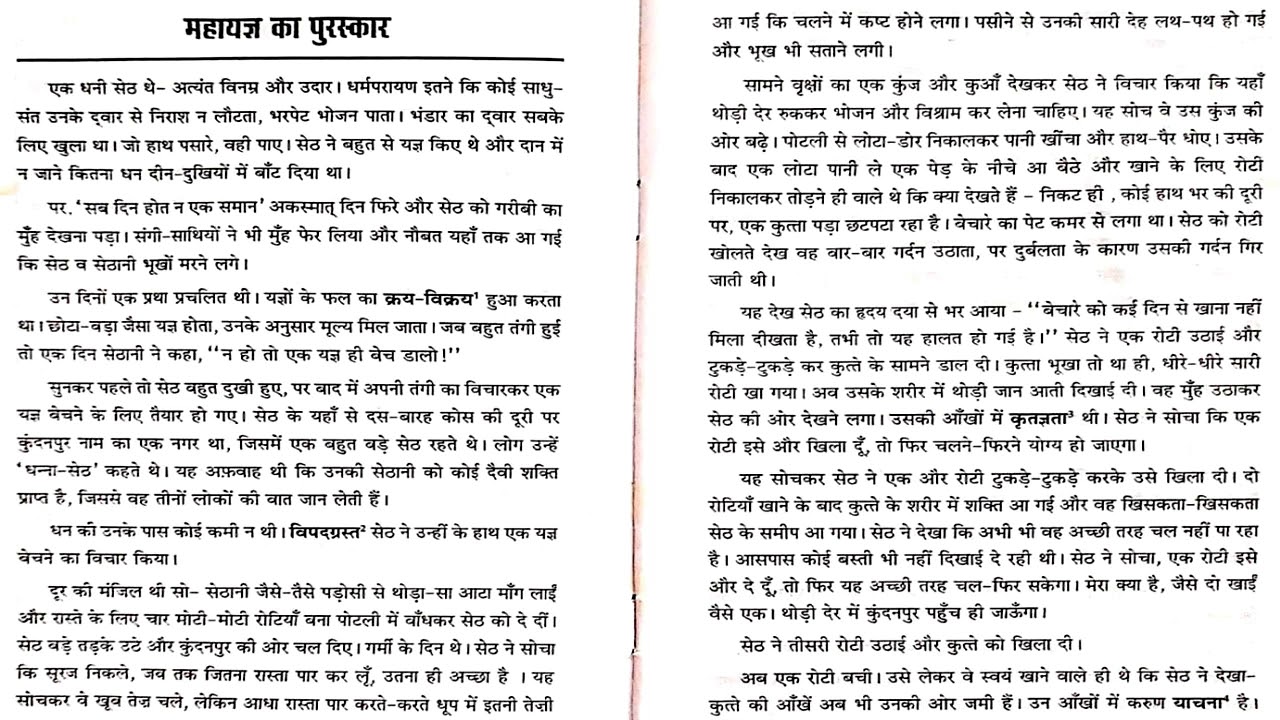 महायज्ञ का पुरस्कार
एक धनी सेठ थे– अत्यंत विनम्र और उदार। धर्मपरायण इतने कि कोई साधु-
संत उनके द्वार से निराश न लौटता, भरपेट भोजन पाता। भंडार का द्वार सबके
लिए खुला था। जो हाथ पसारे, वही पाए। सेठ ने बहुत से यज्ञ किए थे और दान में
न जाने कितना धन दीन-दुखियों में बाँट दिया था।
पर. ‘सब दिन होत न एक समान’ अकस्मात् दिन फिरे और सेठ को गरीबी का
मुँह देखना पड़ा। संगी-साथियों ने भी मुँह फेर लिया और नौबत यहाँ तक आ गई
कि सेठ व सेठानी भूखों मरने लगे।
उन दिनों एक प्रथा प्रचलित थी। यज्ञों के फल का क्रय-विक्रय¹ हुआ करता
था। छोटा-बड़ा जैसा यज्ञ होता, उनके अनुसार मूल्य मिल जाता। जब बहुत तंगी हुई
तो एक दिन सेठानी ने कहा, “न हो तो एक यज्ञ ही बेच डालो!”
सुनकर पहले तो सेठ बहुत दुखी हुए, पर बाद में अपनी तंगी का विचारकर एक
यज्ञ बेचने के लिए तैयार हो गए। सेठ के यहाँ से दस-बारह कोस की दूरी पर
कुंदनपुर नाम का एक नगर था, जिसमें एक बहुत बड़े सेठ रहते थे। लोग उन्हें
‘धन्ना-सेठ’ कहते थे। यह अफ़वाह थी कि उनकी सेठानी को कोई दैवी शक्ति
प्राप्त है, जिससे वह तीनों लोकों की बात जान लेती हैं।
धन की उनके पास कोई कमी न थी। विपदग्रस्त² सेठ ने उन्हीं के हाथ एक यज्ञ
बेचने का विचार किया।
दूर की मंजिल थी सो– सेठानी जैसे-तैसे पड़ोसी से थोड़ा-सा आटा माँग लाईं
और रास्ते के लिए चार मोटी-मोटी रोटियाँ बना पोटली में बाँधकर सेठ को दे दीं।
सेठ बड़े तड़के उठे और कुंदनपुर की ओर चल दिए। गर्मी के दिन थे। सेठ ने सोचा
कि सूरज निकले, जब तक जितना रास्ता पार कर लूँ, उतना ही अच्छा है । यह
सोचकर वे खूब तेज़ चले, लेकिन आधा रास्ता पार करते-करते धूप में इतनी तेज़ी
आ गई कि चलने में कष्ट होने लगा। पसीने से उनकी सारी देह लथ-पथ हो गई
और भूख भी सताने लगी।
सामने वृक्षों का एक कुंज और कुआँ देखकर सेठ ने विचार किया कि यहाँ
थोड़ी देर रुककर भोजन और विश्राम कर लेना चाहिए। यह सोच वे उस कुंज की
ओर बढ़े। पोटली से लोटा-डोर निकालकर पानी खींचा और हाथ-पैर धोए। उसके
बाद एक लोटा पानी ले एक पेड़ के नीचे आ बैठे और खाने के लिए रोटी
निकालकर तोड़ने ही वाले थे कि क्या देखते हैं – निकट ही , कोई हाथ भर की दूरी
पर, एक कुत्ता पड़ा छटपटा रहा है। बेचारे का पेट कमर से लगा था। सेठ को रोटी
खोलते देख वह बार-बार गर्दन उठाता, पर दुर्बलता के कारण उसकी गर्दन गिर
जाती थी।
यह देख सेठ का हृदय दया से भर आया – “बेचारे को कई दिन से खाना नहीं
मिला दीखता है, तभी तो यह हालत हो गई है।” सेठ ने एक रोटी उठाई और
टुकड़े-टुकड़े कर कुत्ते के सामने डाल दी। कुत्ता भूखा तो था ही, धीरे-धीरे सारी
रोटी खा गया। अब उसके शरीर में थोड़ी जान आती दिखाई दी। वह मुँह उठाकर
सेठ की ओर देखने लगा। उसकी आँखों में कृतज्ञता³ थी। सेठ ने सोचा कि एक
रोटी इसे और खिला दूँ, तो फिर चलने-फिरने योग्य हो जाएगा।
यह सोचकर सेठ ने एक और रोटी टुकड़े-टुकड़े करके उसे खिला दी। दो
रोटियाँ खाने के बाद कुत्ते के शरीर में शक्ति आ गई और वह खिसकता-खिसकता
सेठ के समीप आ गया। सेठ ने देखा कि अभी भी वह अच्छी तरह चल नहीं पा रहा
है। आसपास कोई बस्ती भी नहीं दिखाई दे रही थी। सेठ ने सोचा, एक रोटी इसे
और दे दूँ, तो फिर यह अच्छी तरह चल-फिर सकेगा। मेरा क्या है, जैसे दो खाईं
वैसे एक। थोड़ी देर में कुंदनपुर पहुँच ही जाऊँगा।
सेठ ने तीसरी रोटी उठाई और कुत्ते को खिला दी।
अब एक रोटी बची। उसे लेकर वे स्वयं खाने वाले ही थे कि सेठ ने देखा–
कुत्ते की आँखें अब भी उनकी ओर जमी हैं। उन आँखों में करुण याचना⁴ है।